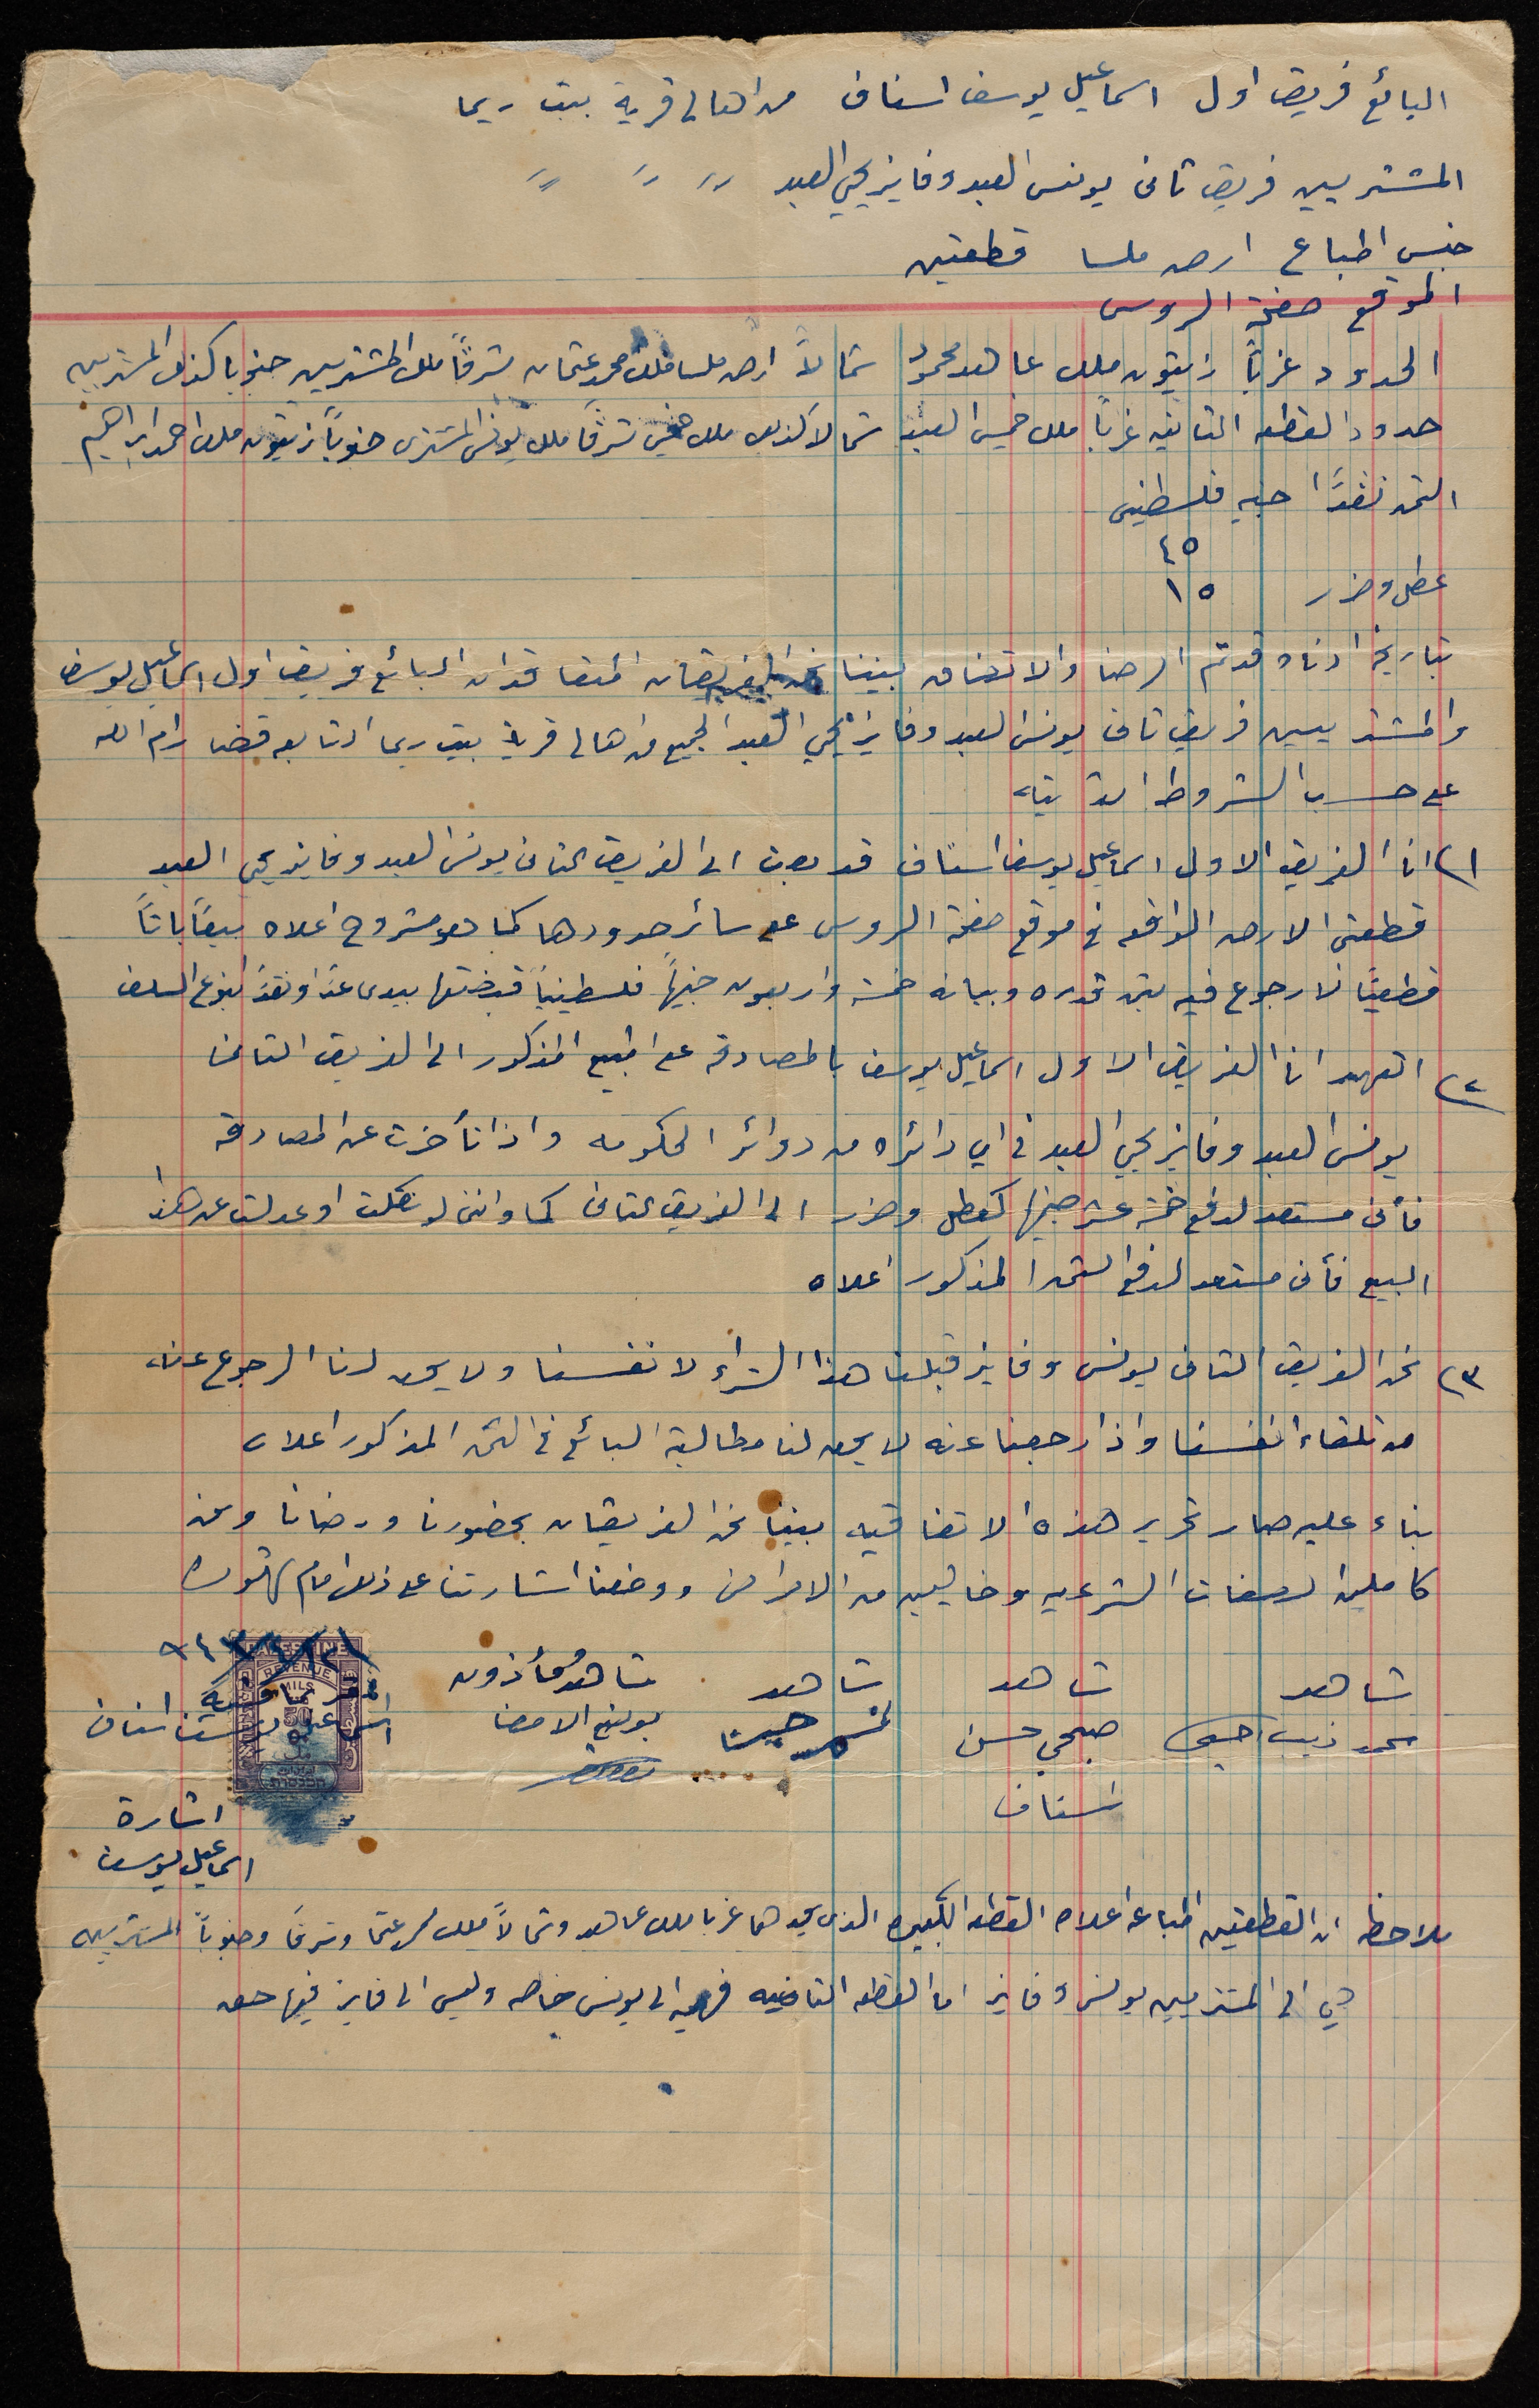 البائع فريق اول اسماعيل يوسف اسناف من اهالي قرية بيت ريما
المشتريين فريق ثاني يونس العبد وفايز يحيى العبد 〃 〃 〃
جنس المباع ارض ملسا قطعتين
الموقع صفحة الروس
الحدود غرباً زيتون ملك عاهد محمود شمالاً ارض ملسا ملك محمد عثمان شرقاً ملك المشتريين جنوبا كذلك المشتريين
حدود القطعه الثانيه غرباً ملك خميس العبد شمالا كذلك ملك خميس شرقاً ملك يونس المشتري جنوباً زيتون ملك احمد ابراهيم
الثمن نقداً جنيه فلسطيني
٤٥
عطل وضرر ١٥
بتاريخ ادناه قد تم الرضا والاتفاق بيننا نحن الفريقان المتعاقدان البائع فريق اول اسماعيل يوسف
والمشتريين فريق ثاني يونس العبد وفايز يحيى العبد الجميع من اهالي قرية بيت ريما التابعه قضا رام الله
على حسب الشروط الاتيه
١) انا الفريق الاول اسماعيل يوسف اسناف قد بعت الى الفريق الثاني يونس العبد وفايز يحيى العبد
قطعتي الارض الواقعه في موقع صفحة الروس على سائر حدودها كما هو مشروح اعلاه بيعاً باتاً
قطعياً لا رجوع فيه بثمن قدره وبيانه خمسة واربعون جنيهاً فلسطينياً قبضتها بيدي عداً ونقداً بنوع السلف
٢) اتعهد انا الفريق الاول اسماعيل يوسف بالمصادقه على البيع المذكور الى الفريق الثاني
يونس العبد وفايز يحيى العبد في اي دائره من دوائر الحكومه واذا تأخرت عن المصادقه
فأني مستعد لدفع خمسة عشر جنيها كعطل وضرر الى الفريق الثاني كما وانني لو نكلت او عدلت عن هذا
البيع فأني مستعد لدفع الثمن المذكور اعلاه
٣) نحن الفريق الثاني يونس وفايز قبلنا هذا الشراء لانفسنا ولا يحق لنا الرجوع عنه
من تلقاء انفسنا واذا رجعنا عنه لا يحق لنا مطالبة البائع في الثمن المذكور اعلاه
بناء عليه صار تحرير هذه الاتفاقيه بيننا نحن الفريقان بحضورنا ورضانا ونحن
كاملين الصفات الشرعيه وخاليين من الامراض ووضعنا اشارتنا على ذلك امام شهوده
شاهد شاهد شاهد شاهد ومأذون
محمد ذيب صبحي حسن بوضع الامضا
اسناف
المقر بما فيه
اسماعيل يوسف اسناف
PALESTINE
REVENUE
MILS
50
اشارة
اسماعيل يوسف
ملاحظه ان القطعتين المباعه اعلاه القطعه الكبيره الذي يحدها غربا ملك عاهد وشمالاً ملك محمد عثمان وشرقاً وجنوباً المشتريين
هي الى المشتريين يونس وفايز اما القطعه الثانيه فهي الى يونس خاصه وليس الى فايز فيها حق